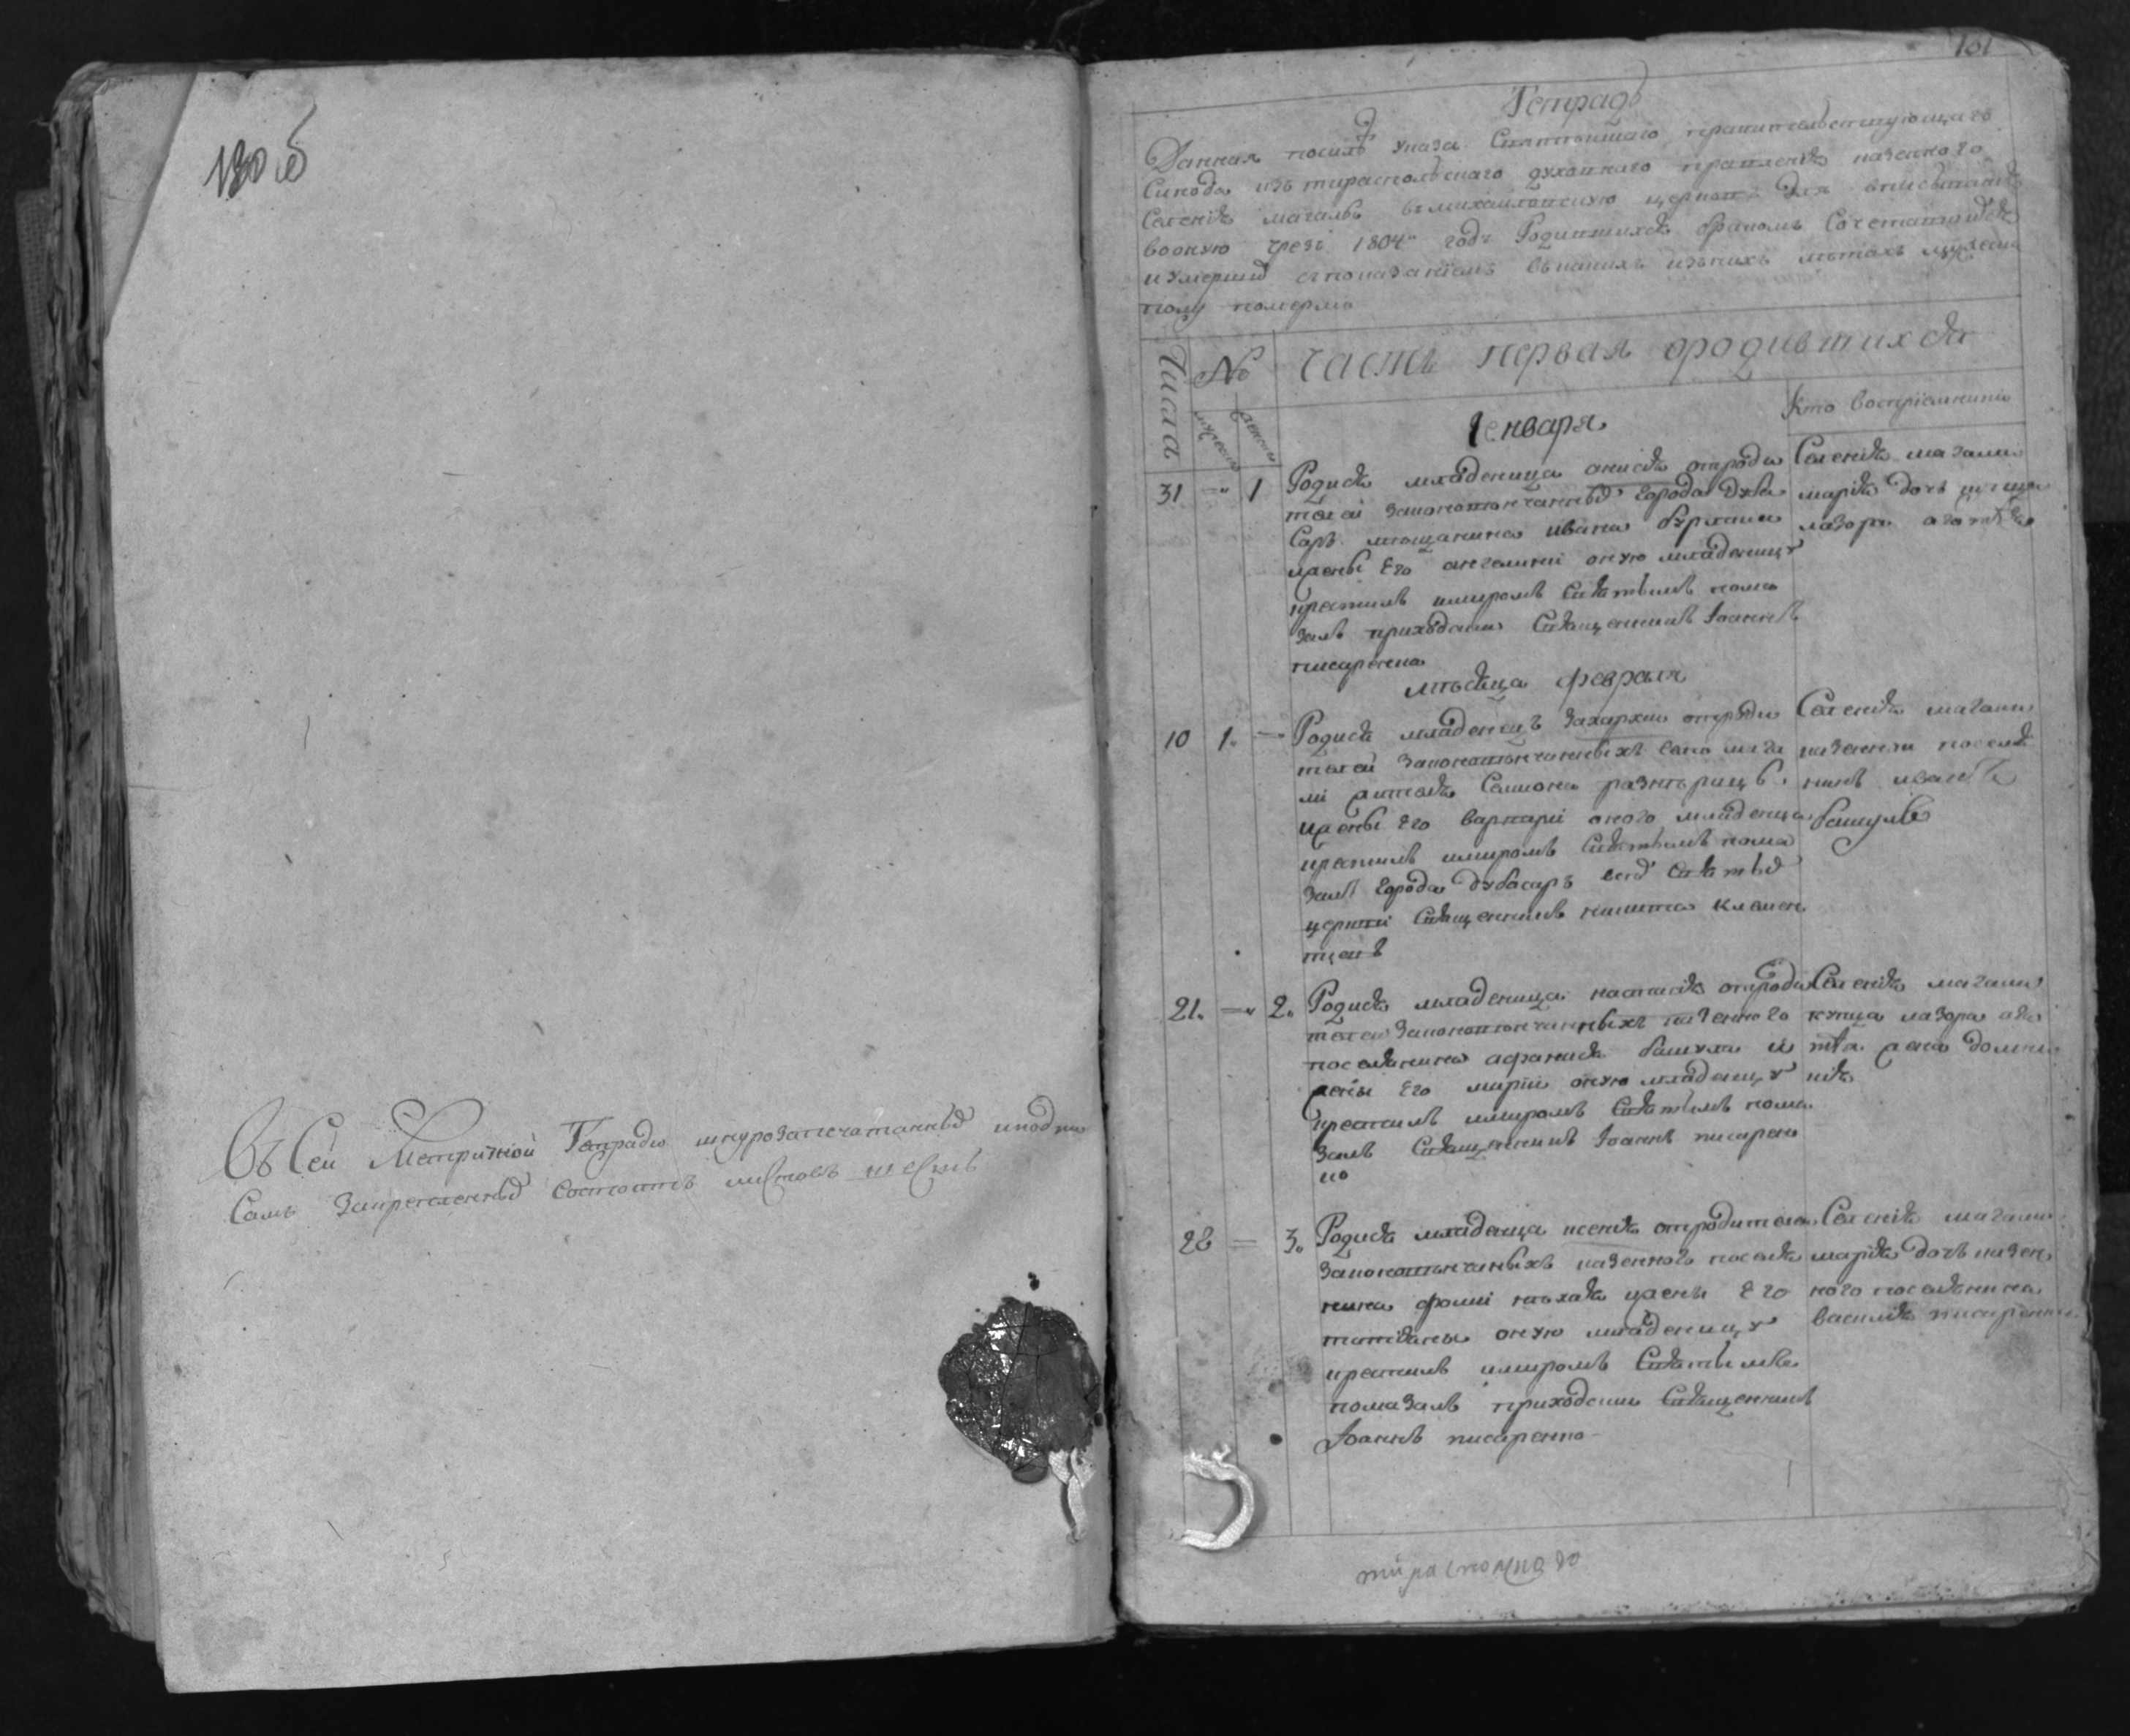 130 об
Въ Сей Метричной Тетради шнурозапечатанныхъ и подпи
самъ закрепленныхъ состоитъ листовъ шесть
101
Тетрадь
Данная по силѣ указа Святѣйшаго правительствующаго
Синода изъ тираспольскаго духовнаго правленія казенного
Селенія магалы въ михайловскую церковь для вписыванія
во оную чрезъ 1804 годъ Родившихся бракомъ Сочетавшихся
и умершихъ съ показаніемъ въ какихъ изъ нихъ лѣтахъ мужеска
полу померло
Числа
№
часть первая о родившихся
мужеска
женска
Генваря
Кто воспріемники
31 — 1 Родися младеница анисія отроди
телей законовѣнчанныхъ города Дуба
саръ мѣщанина ивана
жены его ангелини оную младеницу
крестилъ и миромъ Святымъ пома
залъ приходски Священникъ Іоаннъ
писаренко
Селенія магали
марія дочь купца
лазора
мѣсяца февраля
10 1. — Родися младенецъ захархия отроди
телей законовѣнчанныхъ села мага
ли жителя Симиона
жены его варвари оного младенца
крестилъ и миромъ Святымъ пома
залъ города дубасаръ всѣхъ Святыхъ
церкви Священникъ никита клемен
товъ
Селенія магали
казенный поселя
нинъ иванъ
башулъ
21. — 2. Родися младеница настасія отроди
телей законовѣнчанныхъ казенного
поселянина афанасія башула и
жены его маріи оную младеницу
крестилъ и миромъ Святымъ пома
залъ Священникъ Іоаннъ писарен
ко
Селенія магали
купца лазора
жена домни
кія
28 — 3. Родися младеница ксенія отродителей
законовѣнчанныхъ казенного поселя
нина фоми жены его
татіаны оную младеницу
крестилъ и миромъ Святымъ
помазалъ приходски Священникъ
Іоаннъ писаренко
Селенія магали
марія дочь казен
ного поселянина
василія писаренка
тираспольского